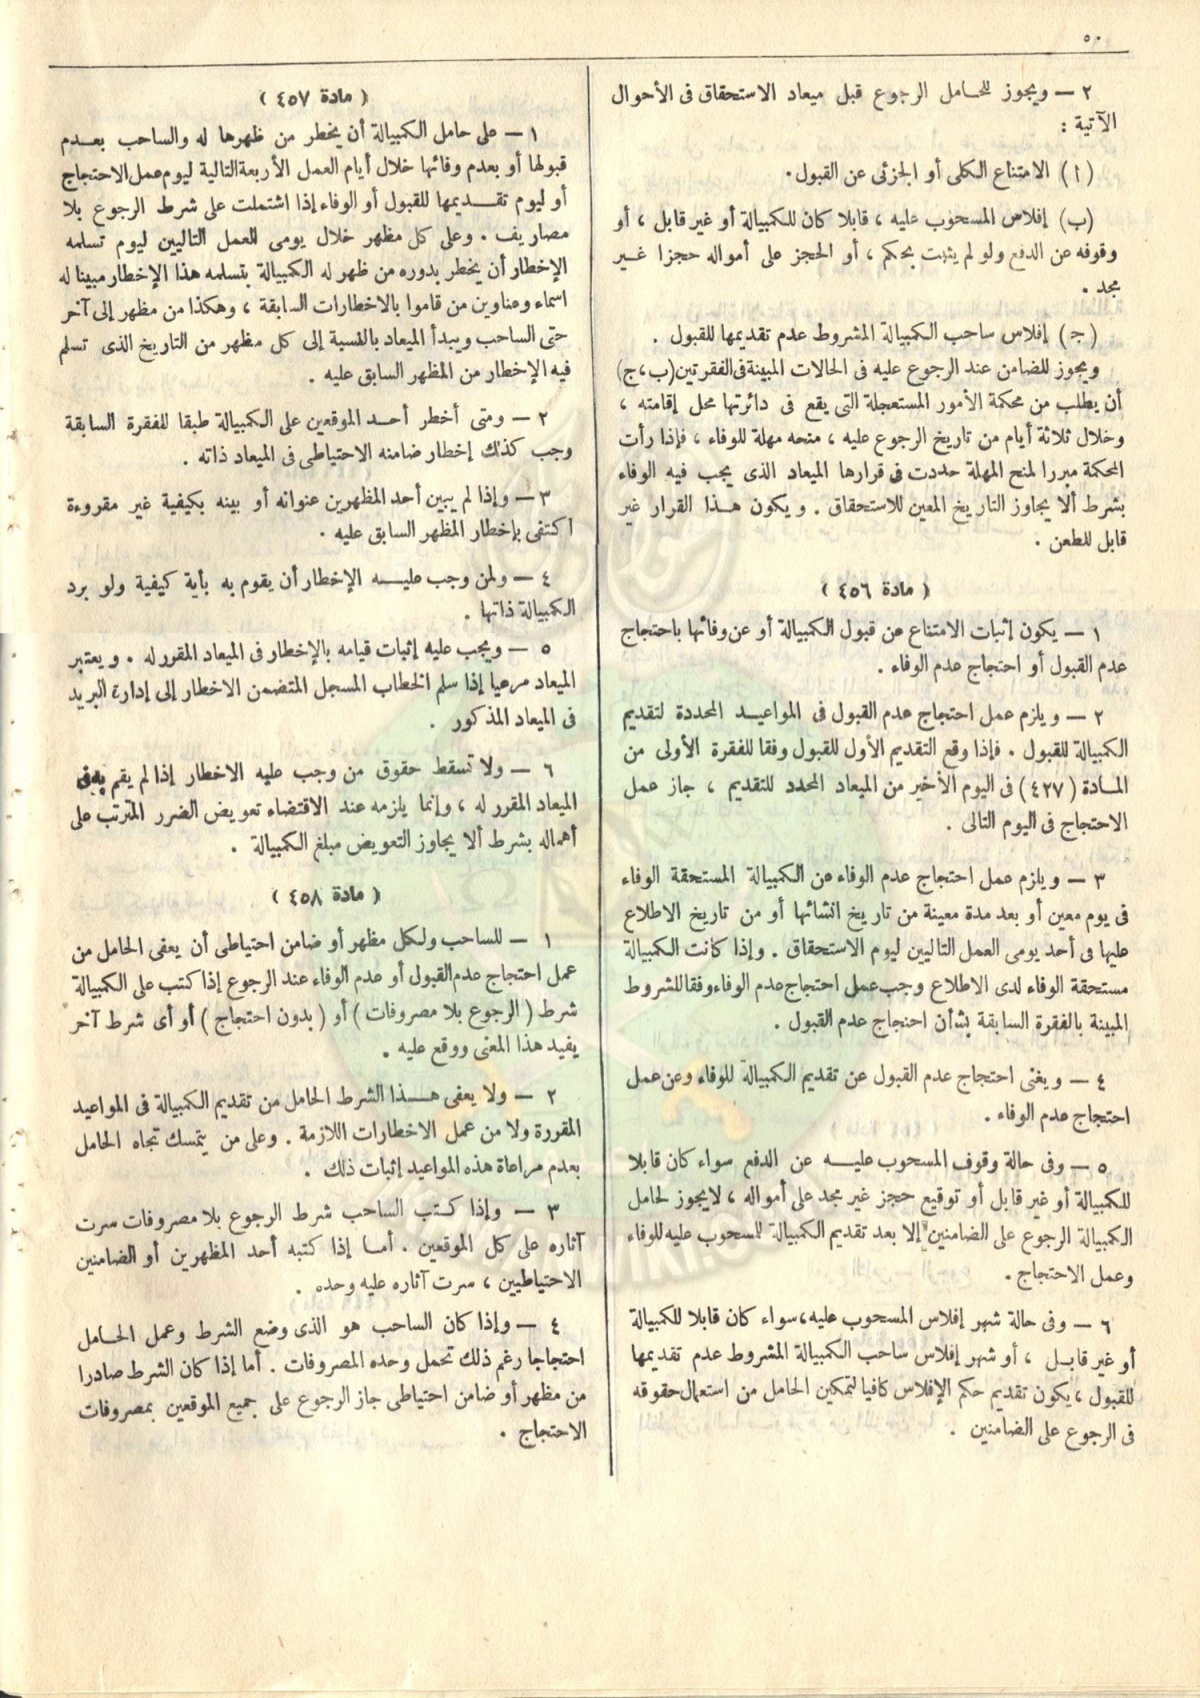 ٥٠
٢ — ويجوز للحامل الرجوع قبل ميعاد الاستحقاق فى الأحوال
الآتية :
(١) الامتناع الكلى أو الجزئى عن القبول.
(ب) إفلاس المسحوب عليه ، قابلا كان للكمبيالة أو غير قابل ، أو
وقوفه عن الدفع ولو لم يثبت بحكم ، أو الحجز على أمواله حجزا غير
مجد .
(جـ) إفلاس ساحب الكمبيالة المشروط عدم تقديمها للقبول .
ويجوز للضامن عند الرجوع عليه فى الحالات المبينة فى الفقرتين (ب،ج)
أن يطلب من محكمة الأمور المستعجلة التى يقع فى دائرتها محل إقامته ،
وخلال ثلاثة أيام من تاريخ الرجوع عليه ، منحه مهلة للوفاء ، فإذا رأت
المحكمة مبررا لمنح المهلة حددت فى قرارها الميعاد الذى يجب فيه الوفاء
بشرط ألا يجاوز التاريخ المعين للاستحقاق . ويكون هذا القرار غير
قابل للطعن .
( مادة ٤٥٦ )
١ — يكون إثبات الامتناع عن قبول الكمبيالة أو عن وفائها باحتجاج
عدم القبول أو احتجاج عدم الوفاء .
٢ — ويلزم عمل احتجاج عدم القبول فى المواعيد المحددة لتقديم
الكمبيالة للقبول . فإذا وقع التقديم الأول للقبول وفقا للفقرة الأولى من
المادة (٤٢٧) فى اليوم الأخير من الميعاد المحدد للتقديم ، جاز عمل
الاحتجاج فى اليوم التالى .
٣ — ويلزم عمل احتجاج عدم الوفاء عن الكمبيالة المستحقة الوفاء
فى يوم معين أو بعد مدة معينة من تاريخ انشائها أو من تاريخ الاطلاع
عليها فى أحد يومى العمل التاليين ليوم الاستحقاق . وإذا كانت الكمبيالة
مستحقة الوفاء لدى الاطلاع وجب عمل احتجاج عدم الوفاء وفقا للشروط
المبينة بالفقرة السابقة بشأن احتجاج عدم القبول .
٤ — ويغنى احتجاج عدم القبول عن تقديم الكمبيالة للوفاء وعن عمل
احتجاج عدم الوفاء .
٥ — وفى حالة وقوف المسحوب عليه عن الدفع سواء كان قابلا
للكمبيالة أو غير قابل أو توقيع حجز غير مجد على أمواله ، لايجوز لحامل
الكمبيالة الرجوع على الضامنين إلا بعد تقديم الكمبيالة للمسحوب عليه للوفاء
وعمل الاحتجاج .
٦ — وفى حالة شهر إفلاس المسحوب عليه، سواء كان قابلا للكمبيالة
أو غير قابل ، أو شهر إفلاس ساحب الكمبيالة المشروط عدم تقديمها
للقبول ، يكون تقديم حكم الإفلاس كافيا لتمكين الحامل من استعمال حقوقه
فى الرجوع على الضامنين .
( مادة ٤٥٧ )
١ — على حامل الكمبيالة أن يخطر من ظهرها له والساحب بعدم
قبولها أو بعدم وفائها خلال أيام العمل الأربعة التالية ليوم عمل الاحتجاج
أو ليوم تقديمها للقبول أو الوفاء إذا اشتملت على شرط الرجوع بلا
مصاريف . وعلى كل مظهر خلال يومى العمل التاليين ليوم تسلمه
الإخطار أن يخطر بدوره من ظهر له الكمبيالة بتسلمه هذا الإخطار مبينا له
اسماء وعناوين من قاموا بالاخطارات السابقة ، وهكذا من مظهر إلى آخر
حتى الساحب ويبدأ الميعاد بالنسبة إلى كل مظهر من التاريخ الذى تسلم
فيه الإخطار من المظهر السابق عليه .
٢ — ومتى أخطر أحد الموقعين على الكمبيالة طبقا للفقرة السابقة
وجب كذلك إخطار ضامنه الاحتياطى فى الميعاد ذاته .
٣ — وإذا لم يبين أحد المظهرين عنوانه أو بينه بكيفية غير مقروءة
اكتفى بإخطار المظهر السابق عليه .
٤ — ولمن وجب عليه الإخطار أن يقوم به بأية كيفية ولو برد
الكمبيالة ذاتها .
٥ — ويجب عليه إثبات قيامه بالإخطار فى الميعاد المقرر له . ويعتبر
الميعاد مرعيا إذا سلم الخطاب المسجل المتضمن الاخطار إلى إدارة البريد
فى الميعاد المذكور .
٦ — ولا تسقط حقوق من وجب عليه الاخطار إذا لم يقم به فى
الميعاد المقرر له ، وإنما يلزمه عند الاقتضاء تعويض الضرر المترتب على
أهماله بشرط ألا يجاوز التعويض مبلغ الكمبيالة .
( مادة ٤٥٨ )
١ — للساحب ولكل مظهر أو ضامن احتياطى أن يعفى الحامل من
عمل احتجاج عدم القبول أو عدم الوفاء عند الرجوع إذا كتب على الكمبيالة
شرط ( الرجوع بلا مصروفات ) أو ( بدون احتجاج ) أو أى شرط آخر
يفيد هذا المعنى ووقع عليه .
٢ — ولا يعفى هذا الشرط الحامل من تقديم الكمبيالة فى المواعيد
المقررة ولا من عمل الاخطارات اللازمة . وعلى من يتمسك تجاه الحامل
بعدم مراعاة هذه المواعيد إثبات ذلك .
٣ — وإذا كتب الساحب شرط الرجوع بلا مصروفات سرت
آثاره على كل الموقعين . أما إذا كتبه أحد المظهرين أو الضامنين
الاحتياطيين ، سرت آثاره عليه وحده .
٤ — وإذا كان الساحب هو الذى وضع الشرط وعمل الحامل
احتجاجا رغم ذلك تحمل وحده المصروفات . أما إذا كان الشرط صادرا
من مظهر أو ضامن احتياطى جاز الرجوع على جميع الموقعين بمصروفات
الاحتجاج .